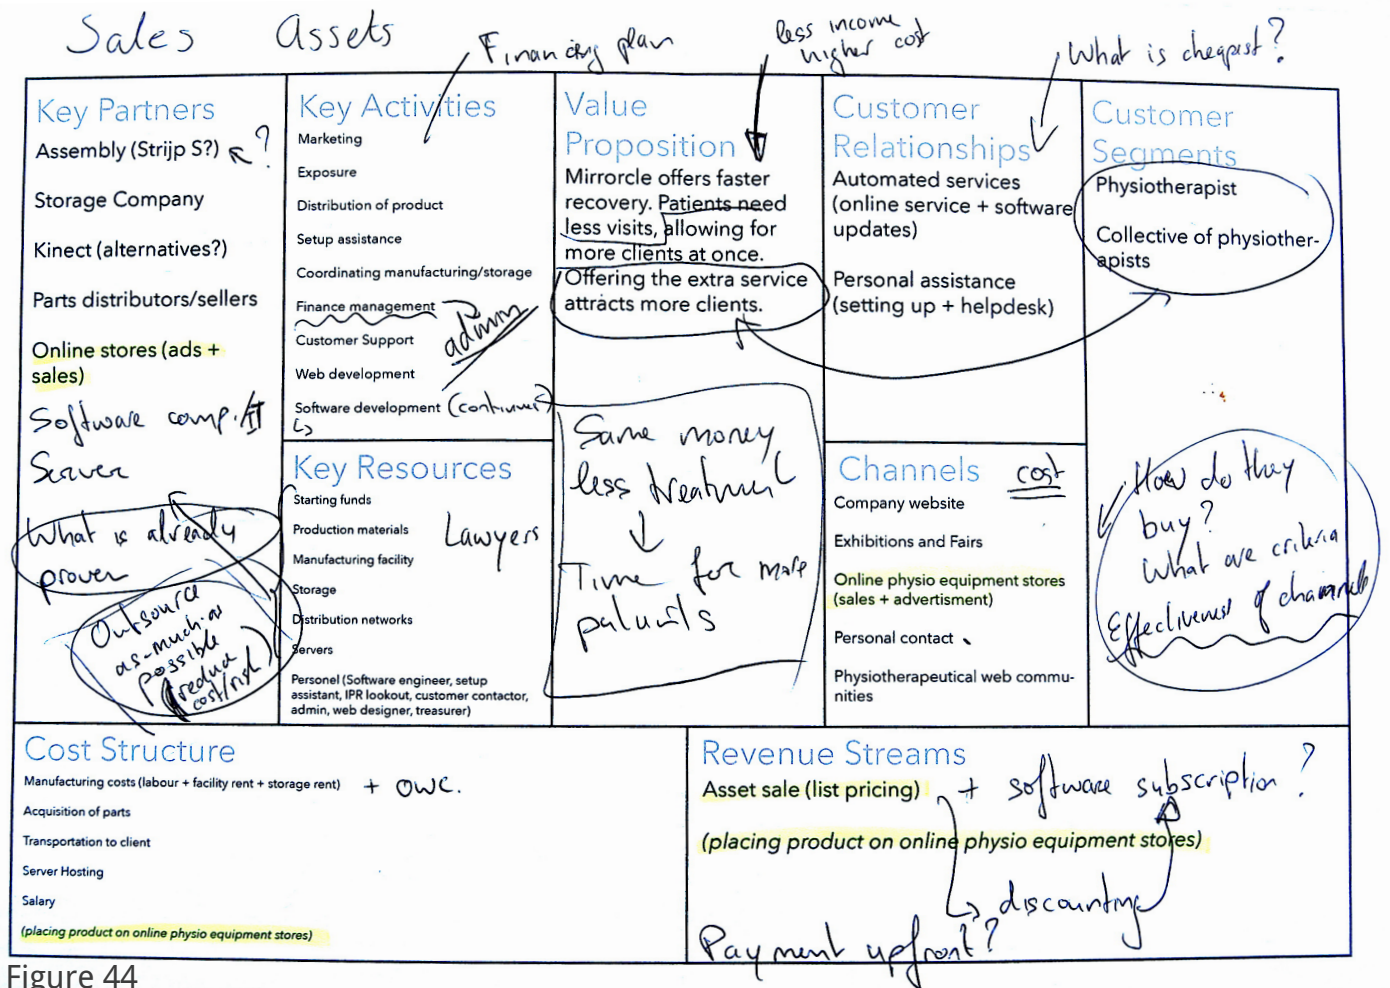 Sales Assets
Financing plan
less income
higher cost
What is cheapest?
Key Partners
Assembly (Strijp S?) ?
Storage Company
Kinect (alternatives?)
Parts distributors/sellers
Online stores (ads +
sales)
Software comp./IT
Server
What is already
proven
Outsource
as-much-as
possible
(reduce
cost/risk)
Key Activities
Marketing
Exposure
Distribution of product
Setup assistance
Coordinating manufacturing/storage
Finance management
admin
Customer Support
Web development
Software development
Key Resources
Starting funds
Production materials
Lawyers
Manufacturing facility
Storage
Distribution networks
Servers
Personel (Software engineer, setup
assistant, IPR lookout, customer contactor,
admin, web designer, treasurer)
Value
Proposition
Mirrorcle offers faster
recovery. Patients need
less visits, allowing for
more clients at once.
Offering the extra service
attracts more clients.
Same money
less treatment
Time for more
patients
Customer
Relationships
Automated services
(online service + software
updates)
Personal assistance
(setting up + helpdesk)
Channels cost
Company website
Exhibitions and Fairs
Online physio equipment stores
(sales + advertisment)
Personal contact
Physiotherapeutical web commu-
nities
Customer
Segments
Physiotherapist
Collective of physiother-
apists
How do they
buy?
What are criteria
Effectiveness of channels
Cost Structure
Manufacturing costs (labour + facility rent + storage rent) +
Acquisition of parts
Transportation to client
Server Hosting
Salary
(placing product on online physio equipment stores)
Revenue Streams
Asset sale (list pricing) + software subscription?
(placing product on online physio equipment stores)
discounting
Payment upfront?
Figure 44